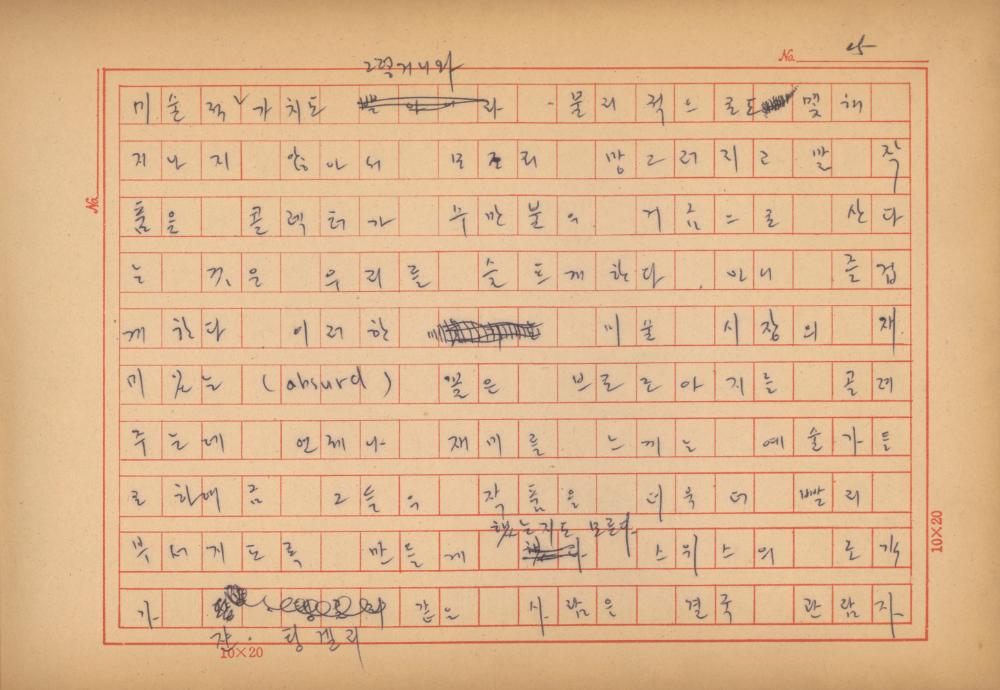 No. 25
그렇거니와
미술적 가치도 라 - 물리적으로도 몇해
지나지 않아서 모조리 망그러지고 말 작
품을 콜렉터가 수만불의 거금으로 산다
는 것은 우리를 슬프게 한다. 아니 즐겁
게 한다 이러한 미술 시장의 재
미있는 (absurd) 꼴은 브르조아지를 골려
주는데 언제나 재미를 느끼는 예술가들
로 하여금 그들의 작품을 더욱 더 빨리
했는지도 모른다.
부서지도록 만들게 스위스의 조각
가 같은 사람은 결국 관람자
쟌·팅겔리
No.
10×20
10×20